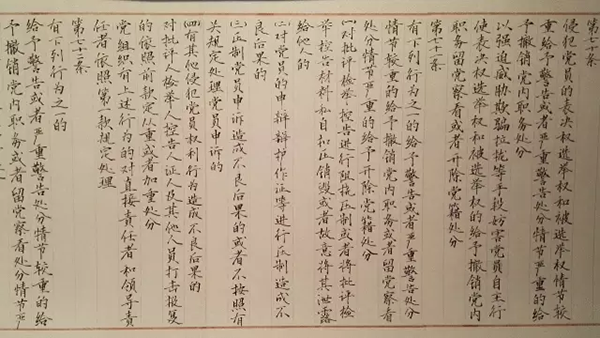 第七十条
侵犯党员的表决权选举权和被选举权情节较
重给予警告或者严重警告处分情节严重的给
予撤销党内职务处分
以强迫威胁欺骗拉拢等手段妨害党员自主行
使表决权选举权和被选举权的给予撤销党内
职务留党察看或者开除党籍处分
第七十一条
有下列行为之一的给予警告或者严重警告处分
情节较重的给予撤销党内职务或者留党察看
处分情节严重的给予开除党籍处分
(一)对批评检举、控告进行阻挠压制或者将批评检
举控告材料私自扣压销毁或者故意将其泄露
给他人的
(二)对党员的申辩辩护作证等进行压制造成不
良后果的
(三)压制党员申诉造成不良后果的或者不按照有
关规定处理党员申诉的
(四)有其他侵犯党员权利行为造成不良后果的
对批评人检举人控告人证人及其他人员打击报复
的依照前款规定从重或者加重处分
党组织有上述行为的对直接责任者和领导责
任者依照第一款规定处理
第七十二条
有下列行为之一的
给予警告或者严重警告处分情节较重的给
予撤销党内职务或者留党察看处分情节严